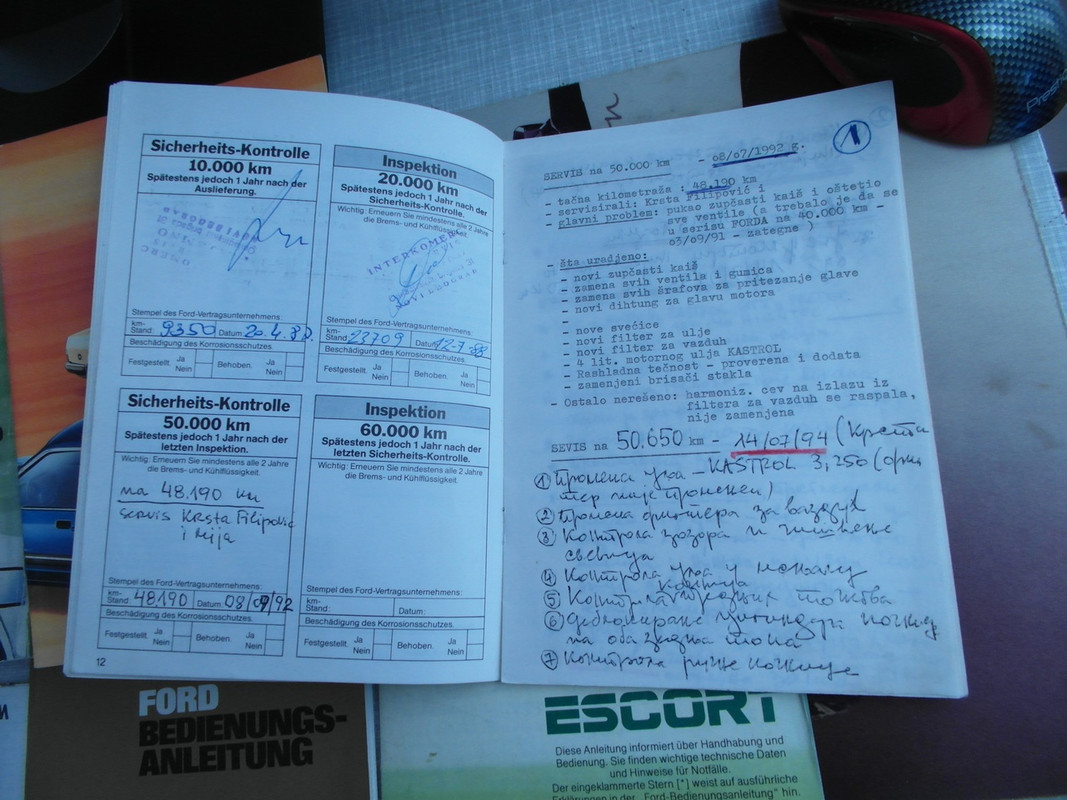 Sicherheits-Kontrolle
10.000 km
Spätestens jedoch 1 Jahr nach der
Auslieferung.
Stempel des Ford-Vertragsunternehmens:
km-
Stand: 9350 Datum: 20.4.
Beschädigung des Korrosionsschutzes.
Festgestellt. Ja Behoben. Ja
Nein Nein
Inspektion
20.000 km
Spätestens jedoch 1 Jahr nach der
Sicherheits-Kontrolle.
Wichtig: Erneuern Sie mindestens alle 2 Jahre
die Brems- und Kühlflüssigkeit.
INTERKOMERC
NOVI BEOGRAD
Stempel des Ford-Vertragsunternehmens:
km-
Stand: 23709 Datum: 12-7-88
Beschädigung des Korrosionsschutzes.
Festgestellt. Ja Behoben. Ja
Nein Nein
Sicherheits-Kontrolle
50.000 km
Spätestens jedoch 1 Jahr nach der
letzten Inspektion.
Wichtig: Erneuern Sie mindestens alle 2 Jahre
die Brems- und Kühlflüssigkeit.
na 48.190 km
servis Krsta Filipović
i Ilija
Stempel des Ford-Vertragsunternehmens:
km-
Stand: 48190 Datum: 08/07/92
Beschädigung des Korrosionsschutzes.
Festgestellt. Ja Behoben. Ja
Nein Nein
Inspektion
60.000 km
Spätestens jedoch 1 Jahr nach der
letzten Sicherheits-Kontrolle.
Wichtig: Erneuern Sie mindestens alle 2 Jahre
die Brems- und Kühlflüssigkeit.
Stempel des Ford-Vertragsunternehmens:
km-
Stand: Datum:
Beschädigung des Korrosionsschutzes.
Festgestellt. Ja Behoben. Ja
Nein Nein
12
1
SERVIS na 50.000 km - 08/07/1992 g.
- tačna kilometraša : 48.190 km
- servisirali: Krsta Filipović i
- glavni problem: pukao zupčasti kaiš i oštetio
sve ventile (a trebalo je da se
u serisu FORDA na 40.000 km -
03/09/91 - zategne )
- šta uradjeno:
- novi zupčasti kaiš
- zamena svih ventila i gumica
- zamena svih šrafova za pritezanje glave
- novi dihtung za glavu motora
-
- nove svećice
- novi filter za ulje
- novi filter za vazduh
- 4 lit. motornog ulja KASTROL
- Rashladna tečnost - proverena i dodata
- zamenjeni brisači stakla
- Ostalo nerešeno: harmoniz. cev na izlazu iz
filtera za vazduh se raspala,
nije zamenjena
SEVIS na 50.650 km - 14/07/94 (Крста
① Промена уља - KASTROL 3,250 (фил
тер није промењен)
② Промена филтера за ваздух
③ Контрола зазора и чишћење
свећица
④ Контрола уља у мењачу
⑤ Контрола предњих кочница
⑥ Деблокирање цилиндера кочнице
на оба задња точка
⑦ Контрола ручне кочнице
FORD
BEDIENUNGS-
ANLEITUNG
ESCORT
Diese Anleitung informiert über Handhabung und
Bedienung. Sie finden wichtige technische Daten
und Hinweise für Notfälle.
Der eingeklammerte Stern [*] weist auf ausführliche
Erklärungen in der „Ford-Bedienungsanleitung" hin.